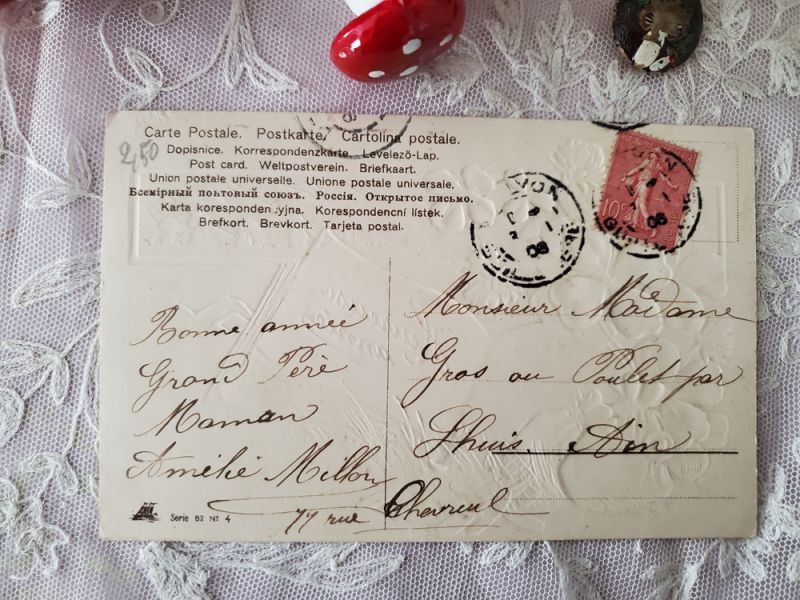 Carte Postale. Postkarte. Cartolina postale.
2,50
Dopisnice. Korrespondenzkarte. Levelező-Lap.
Post card. Weltpostverein. Briefkaart.
Union postale universelle. Unione postale universale.
Всемірный польтовый союзъ. Россія. Открытое письмо.
Karta koresponden yjna. Korespondencní lístek.
Brefkort. Brevkort. Tarjeta postal.
LYON
08
10c
LYON
08
Bonne année
Grand Père
Maman
Amélie Millon
77 rue Chevreul
Monsieur Madame
Gros au Poulet par
Lhuis. Ain
Serie 82 No 4